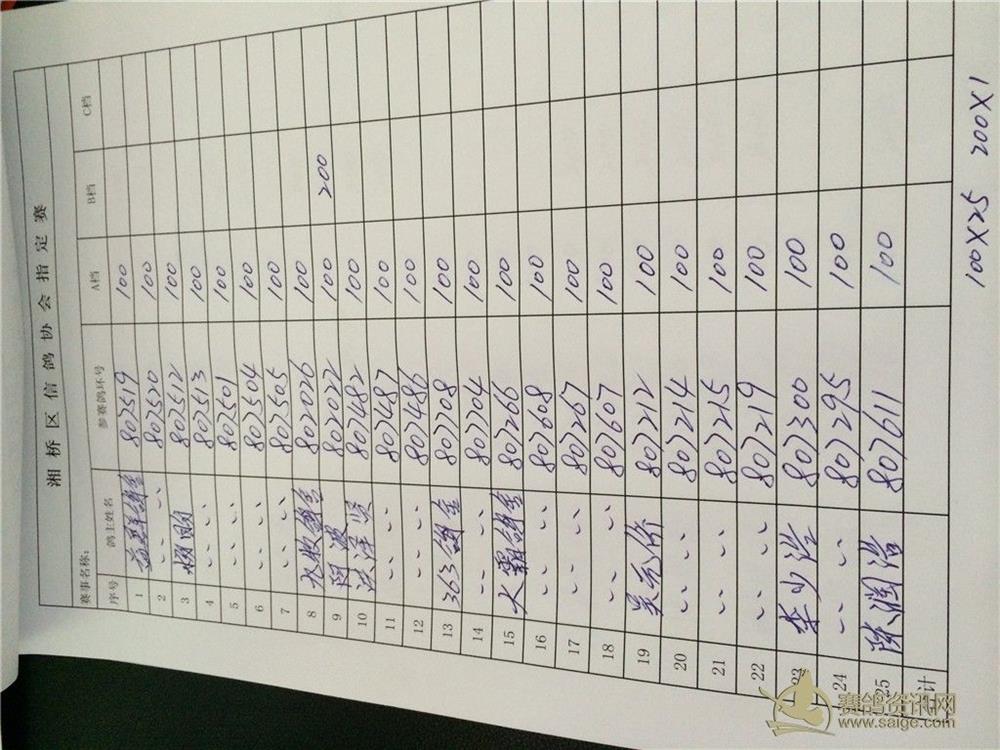 湘桥区信鸽协会指定赛
赛事名称：
序号 鸽主姓名 参赛鸽环号 A档 B档 C档
1 益群鸽舍 802519 100
2 〃 802520 100
3 802512 100
4 〃 802513 100
5 〃 802501 100
6 〃 802504 100
7 〃 802505 100
8 鸽舍 802026 100
9 802022 100 200
10 807482 100
11 〃 807487 100
12 〃 807486 100
13 363鸽舍 807708 100
14 〃 807704 100
15 大霸鸽舍 807266 100
16 〃 807608 100
17 〃 807267 100
18 〃 807607 100
19 807212 100
20 〃 807214 100
21 〃 807215 100
22 〃 807219 100
23 李少浩 807300 100
24 〃 807295 100
25 陈润浩 807611 100
计
100X25 200X1
赛鸽资讯网
www.saige.com